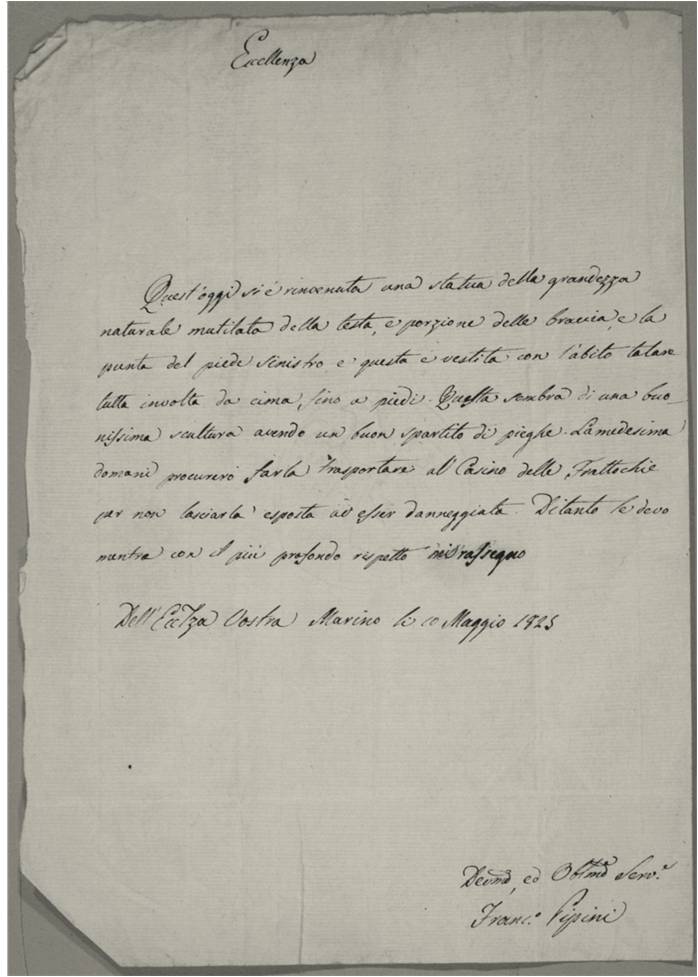 Eccellenza
Quest'oggi si è rinvenuta una statua della grandezza
naturale mutilata della testa, e porzione delle braccia, e la
punta del piede sinistro e questa è vestita con l'abito talare
tutta involta da cima, fino a piedi. Questa sembra di una buo
nissima scultura avendo un buon spartito di pieghe. La medesima
domani procurerò farla trasportare al Casino delle Frattochie
per non lasciarla esposta ad esser danneggiata. Di tanto le devo
mentre con il più profondo rispetto mi rassegno
Dell'Ecc̃za Vostra Marino li 10 Maggio 1825
ed Obl̃mo Serv.e
Franc.o Pipini